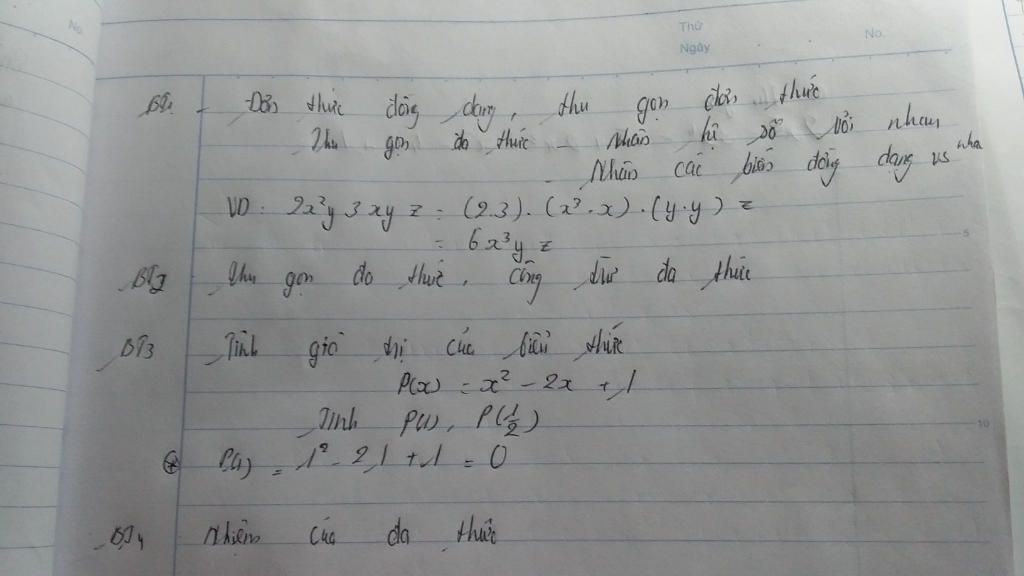 No.
Thứ
Ngày
No.
BT1 - Đơn thức đồng dạng, thu gọn đơn thức
Thu gọn đa thức - Nhân hệ số với nhau
- Nhân các biến đồng dạng vs nha
VD: 2x²y 3xyz = (2.3).(x².x).(y.y) z
= 6x³y z
5
BT2 Thu gọn đa thức, cộng trừ đa thức
BT3 Tính giá trị của biểu thức
P(x) = x² - 2x + 1
Tính P(1), P(1/2)
10
⊕ P(1) = 1² - 2.1 + 1 = 0
BT4 Nhiệm của đa thức